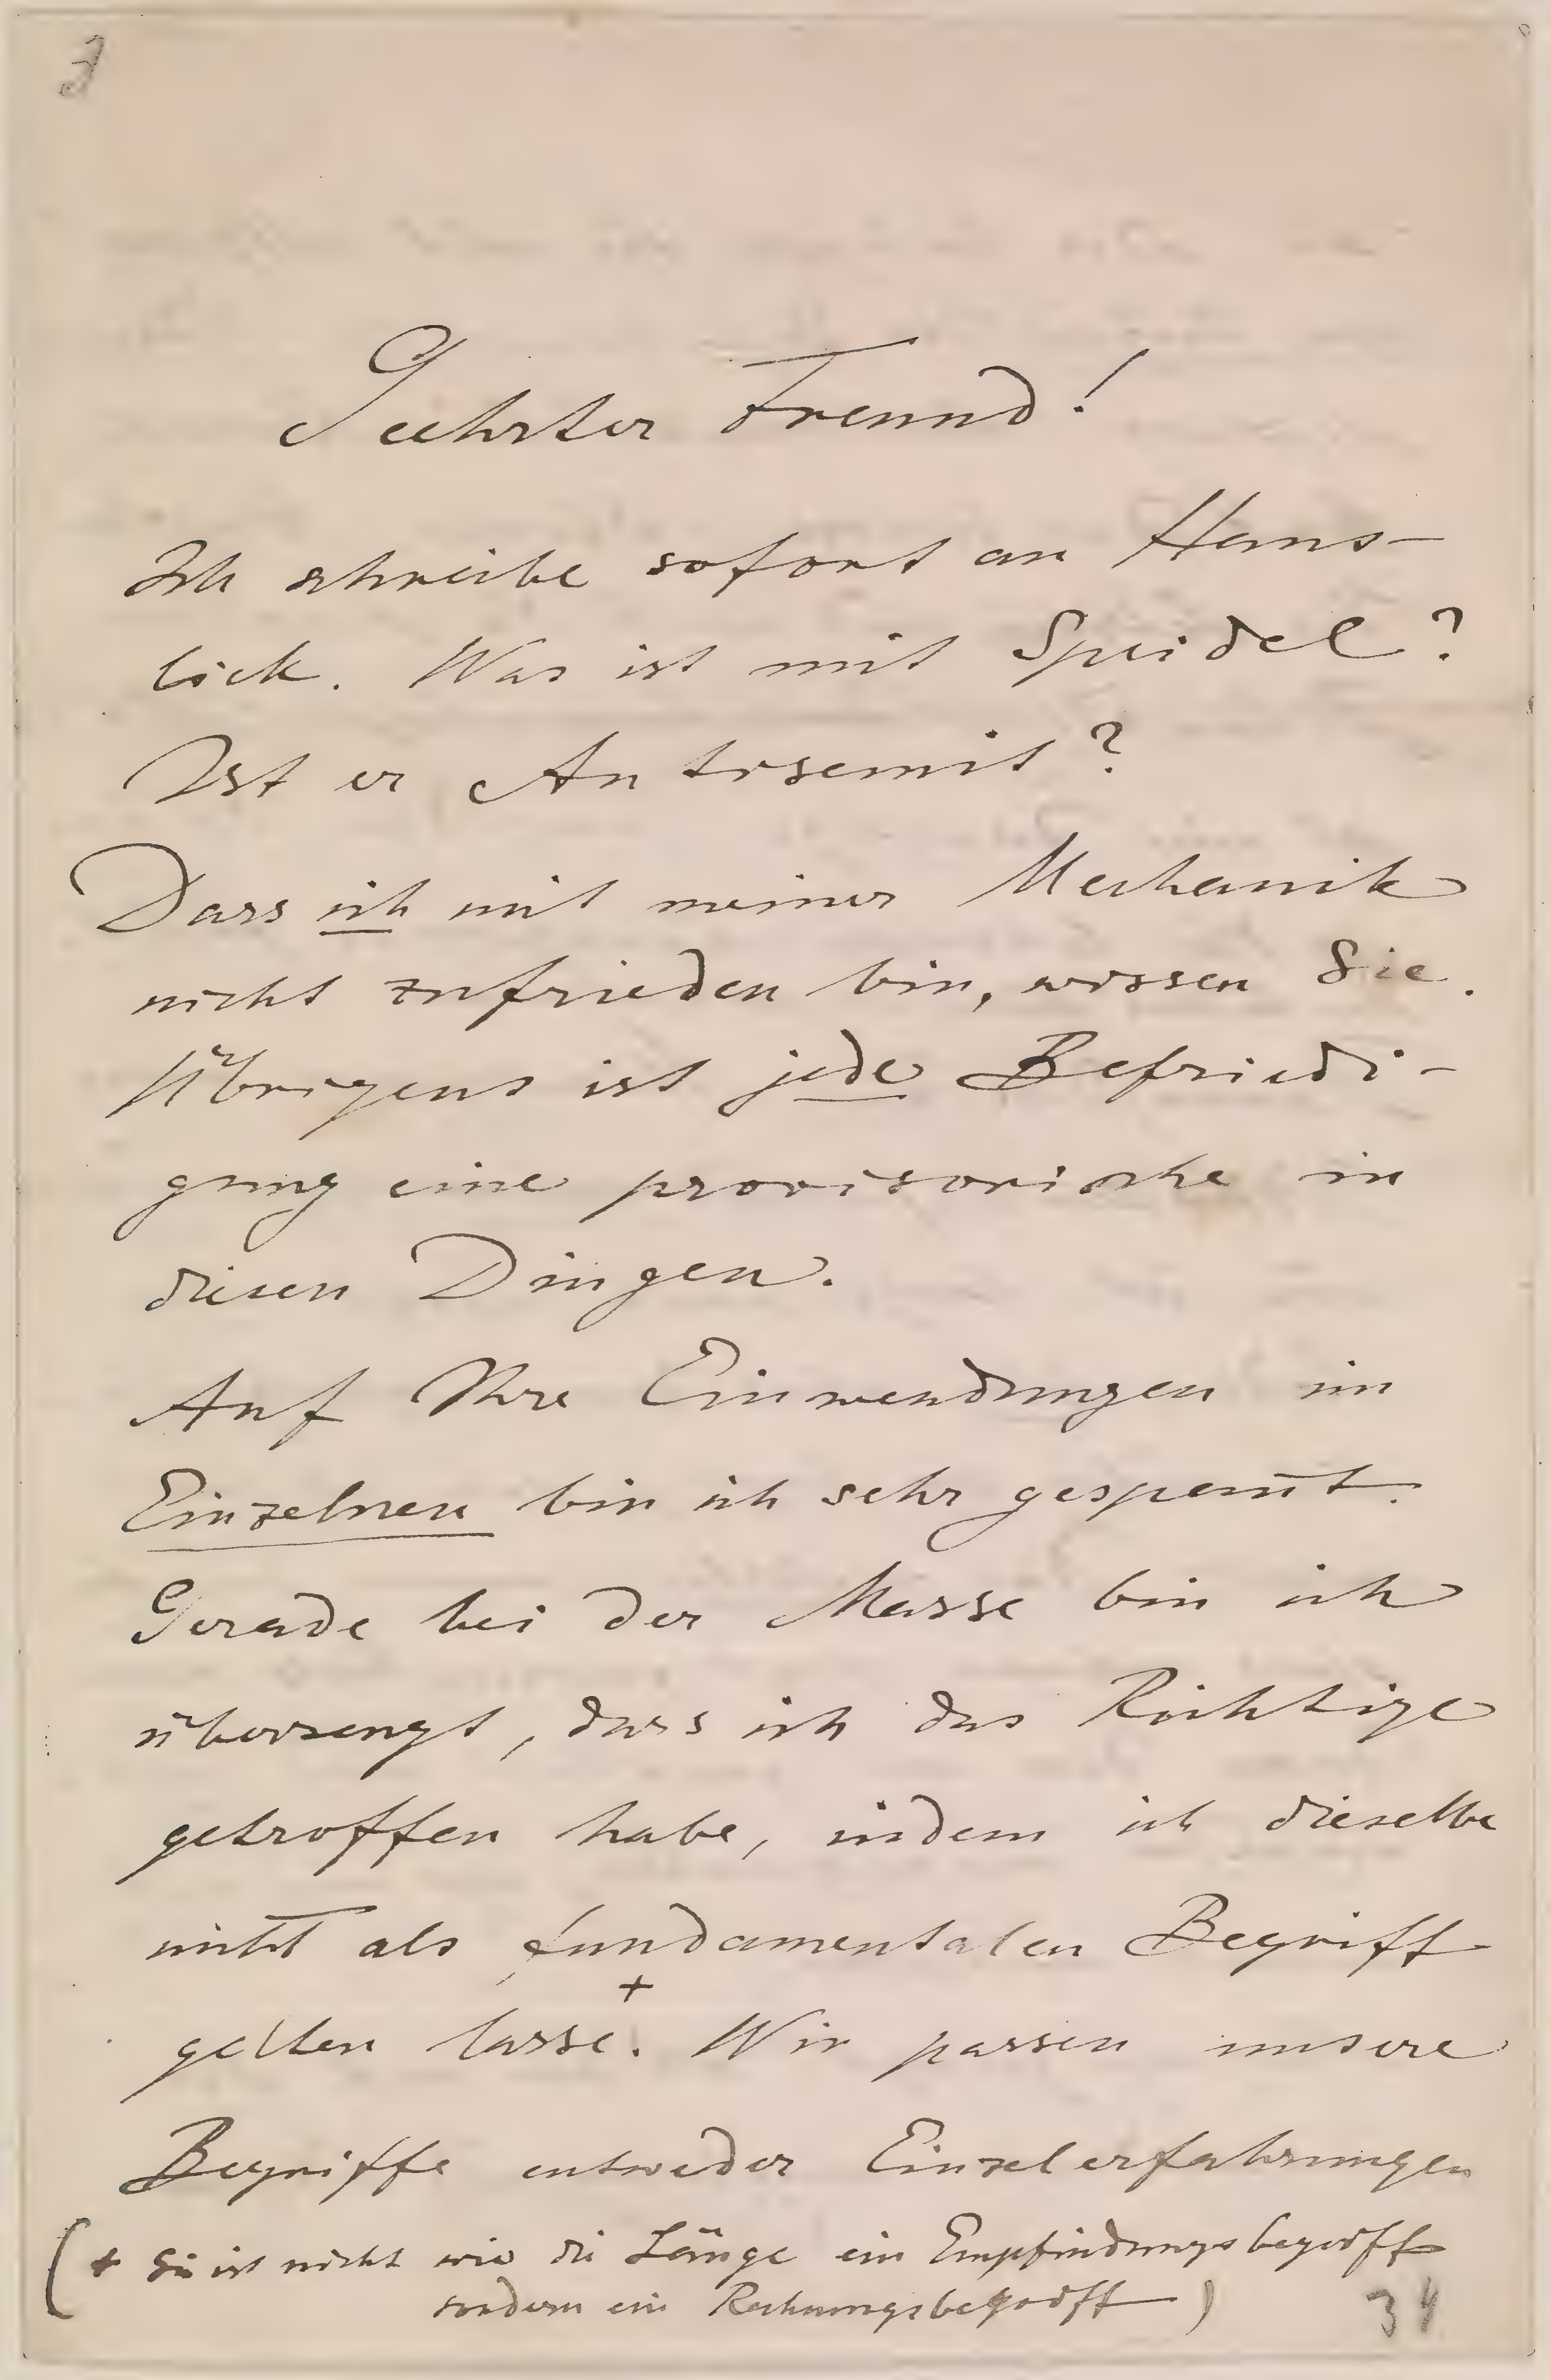 2
Geehrter Freund!
Ich schreibe sofort an Hans-
lick. Was ist mit Speidel?
Ist er Antisemit?
Dass ich mit meiner Mechanik
nicht zufrieden bin, wissen Sie.
Übrigens ist jede Befriedi-
gung eine provisorische in
diesen Dingen.
Auf Ihre Einwendungen im
Einzelnen bin ich sehr gespannt.
Gerade bei der Masse bin ich
überzeugt, dass ich das Richtige
getroffen habe, indem ich dieselbe
nicht als fundamentalen Begriff
gelten lasse.+ Wir passen unsere
Begriffe entweder Einzelerfahrungen
(+ Sie ist nicht wie die Länge ein Empfindungsbegriff
sondern ein Rechnungsbegriff)
34